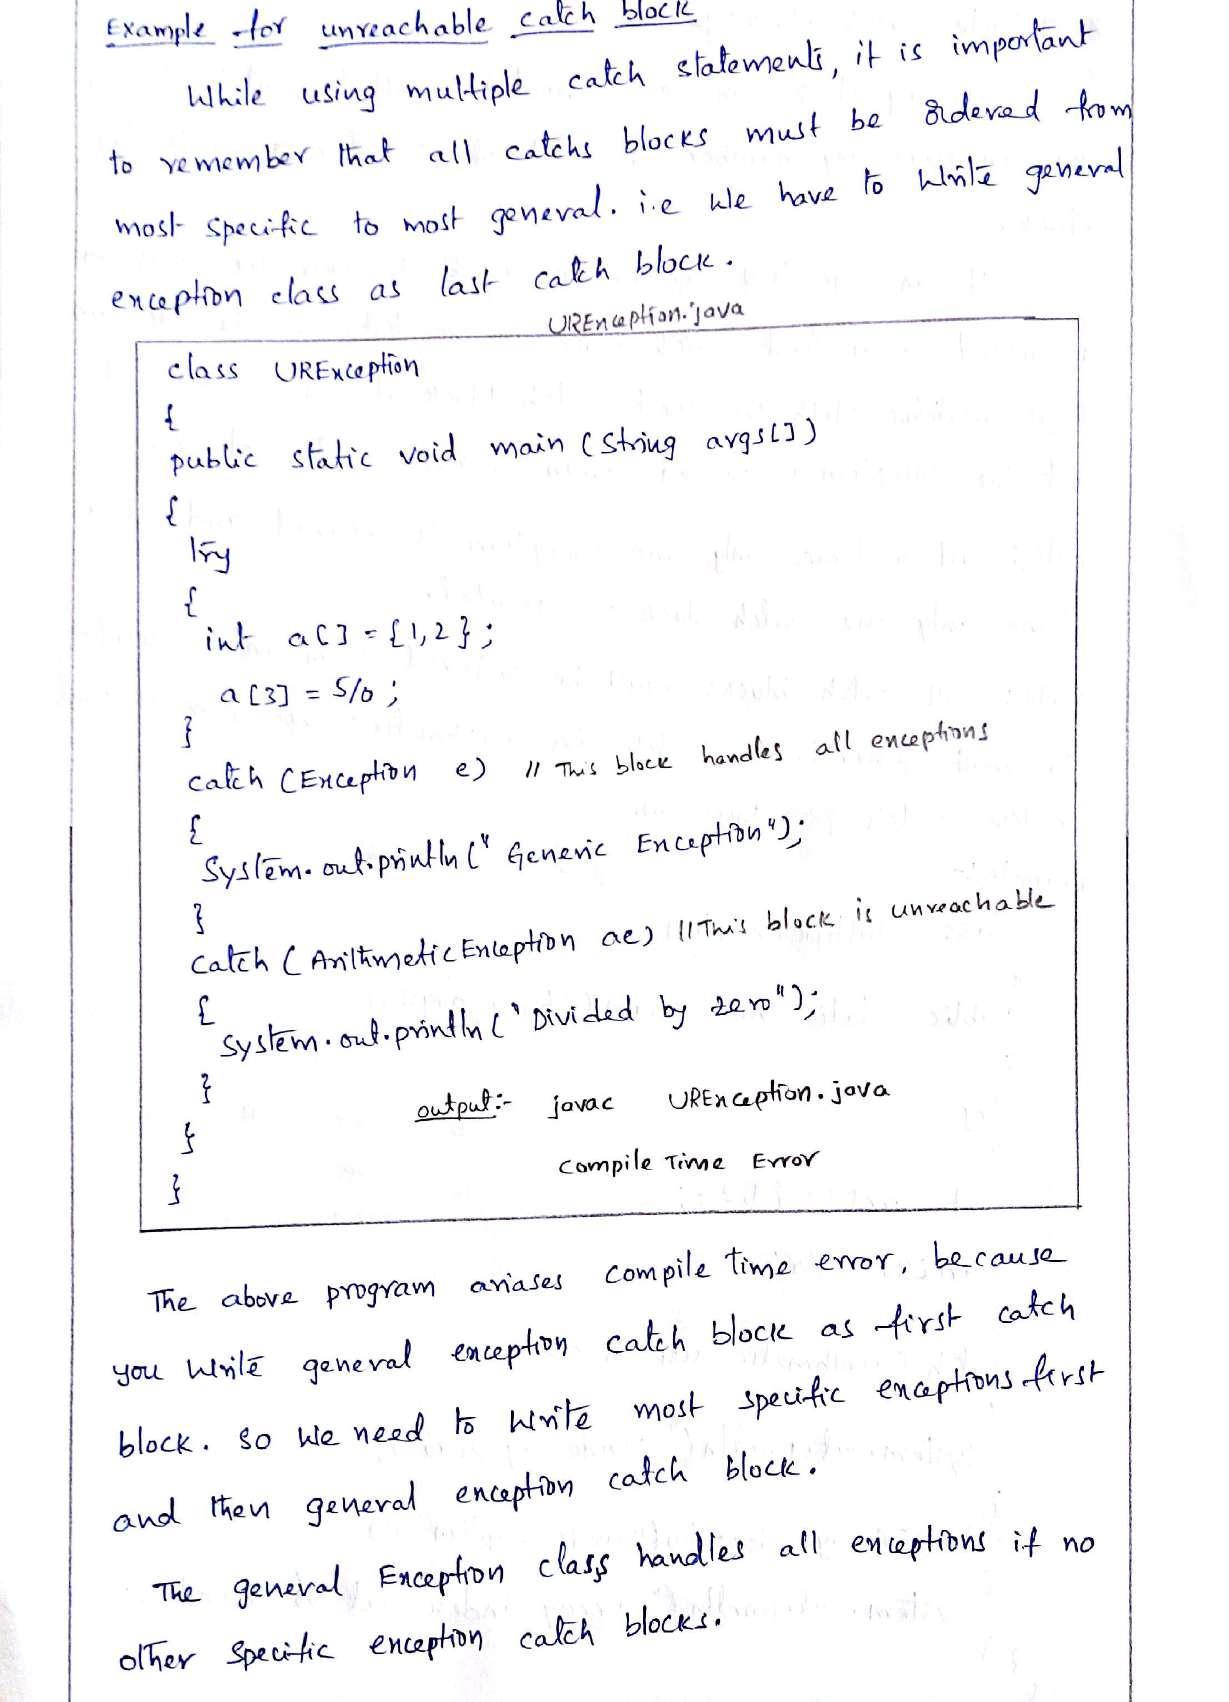 Example for unreachable catch block
While using multiple catch statements, it is important
to remember that all catchs blocks must be ordered from
most specific to most general. i.e We have to Write general
exception class as last catch block.
URException.java
class URException
{
public static void main (String args[])
{
try
{
int a[] = {1,2};
a[3] = 5/0;
}
catch (Exception e) // This block handles all exceptions
{
System.out.println(" Generic Exception");
}
catch (ArithmeticException ae) // This block is unreachable
{
System.out.println("Divided by zero");
}
output:- javac URException.java
}
Compile Time Error
}
The above program ariases compile time error, because
you Write general exception catch block as first catch
block. so We need to Write most specific exceptions first
and then general exception catch block.
The general Exception class handles all exceptions if no
other specific exception catch blocks.